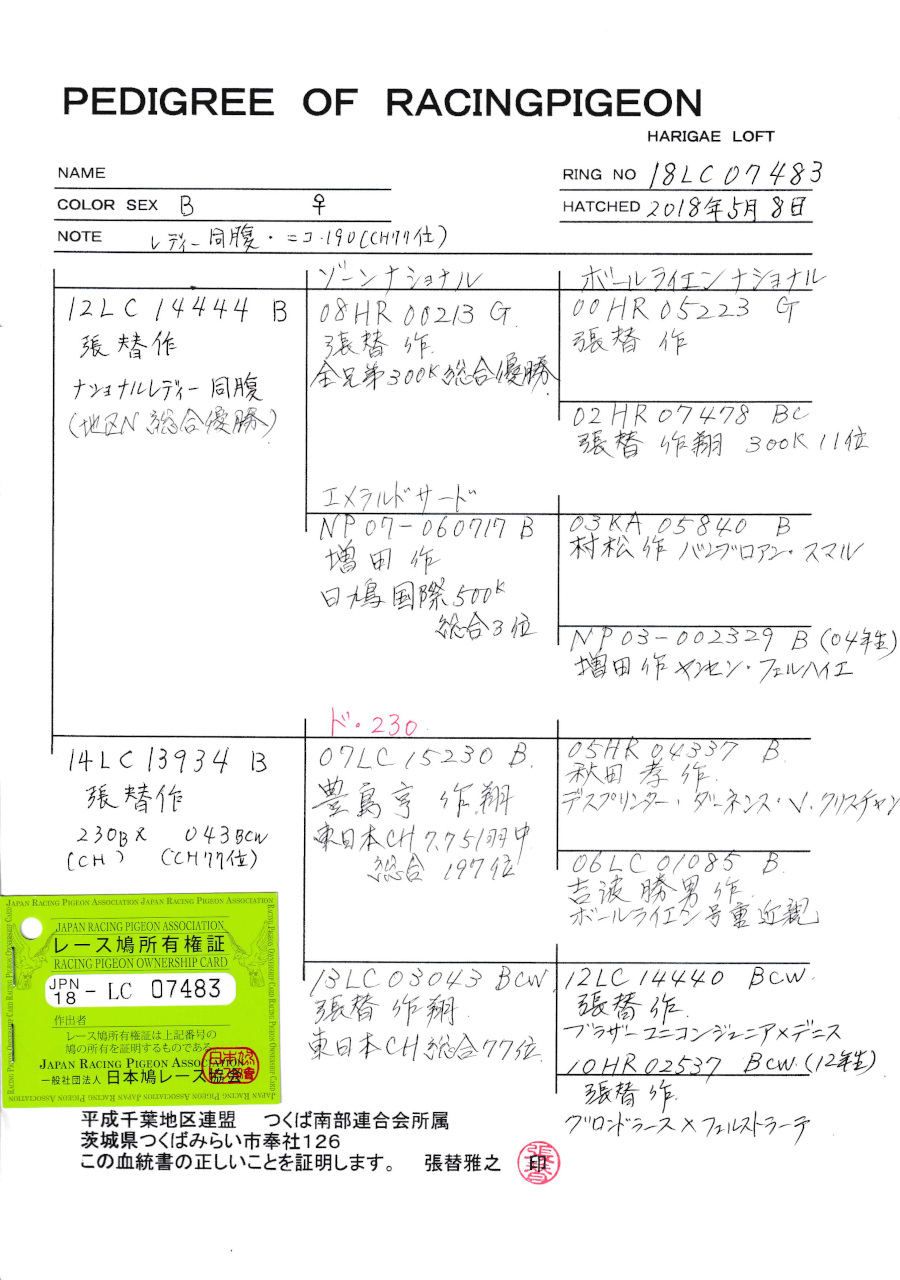 PEDIGREE OF RACINGPIGEON
HARIGAE LOFT
NAME
RING NO 18LC07483
COLOR SEX B ♀
HATCHED 2018年5月8日
NOTE レディー同腹・ニコ・190(CH77位)
12LC 14444 B
張替作
ナショナルレディー同腹
(地区N 総合優勝)
ゾーンナショナル
08HR 00213 G.
張替 作.
全兄弟300K総合優勝
ボールライエンナショナル
00HR 05223 G
張替 作
02HR 07478 BC
張替 作翔 300K 11位
エメラルドサード
NP 07-060717 B
増田 作
日鳩国際500K
総合3位
03KA 05840 B
村松 作 バンブロアン・スマル
NP 03-002329 B (04年生)
増田作 ヤンセン・フェルハイエ
14LC 13934 B
張替作
230B × 043BCW
(CH) (CH77位)
ド・230.
07LC 15230 B.
豊島亨 作翔
東日本CH 7,751羽中
総合 197位
05HR 04337 B.
秋田 孝 作.
デスプリンター・ダーネンス・V.クリスチャン
06LC 01085 B.
吉波 勝男 作.
ボールライエン号重近親
13LC 03043 BCW
張替 作翔
東日本CH総合77位.
12LC 14440 BCW.
張替 作.
ブラザーユニコンジェニア×デニス
10HR 02537 BCW. (12年生)
張替 作.
ブロンドラース×フェルストラーテ
JAPAN RACING PIGEON ASSOCIATION JAPAN RACING PIGEON ASSOCIATION
JAPAN RACING PIGEON ASSOCIATION
レース鳩所有権証
RACING PIGEON OWNERSHIP CARD
JPN
18 - LC 07483
作出者
レース鳩所有権証は上記番号の
鳩の所有を証明するものである
JAPAN RACING PIGEON ASSOCIATION
一般社団法人 日本鳩レース協会
平成千葉地区連盟 つくば南部連合会所属
茨城県つくばみらい市奉社126
この血統書の正しいことを証明します。 張替雅之 印